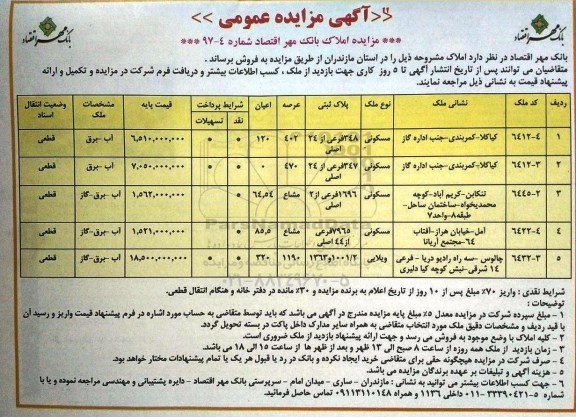 <<آگهی مزایده عمومی>>
*** مزایده املاک بانک مهر اقتصاد شماره ۴-۹۷ ***
بانک مهر اقتصاد
بانک مهر اقتصاد در نظر دارد املاک مشروحه ذیل را در استان مازندران از طریق مزایده به فروش برساند.
متقاضیان می توانند پس از تاریخ انتشار آگهی تا ۵ روز کاری جهت بازدید از ملک، کسب اطلاعات بیشتر و دریافت فرم شرکت در مزایده و تکمیل و ارائه
پیشنهاد قیمت به نشانی ذیل مراجعه نمایند.
ردیف کد ملک نشانی ملک نوع ملک پلاک ثبتی عرصه اعیان شرایط پرداخت نقد تسهیلات قیمت پایه مشخصات ملک وضعیت انتقال اسناد
۱ ۶۴۱۲-۴ کیاکلا-کمربندی-جنب اداره گاز مسکونی ۳۴۸فرعی از ۲۴ اصلی ۴۰۲ ۱۲۰ * * ۶,۵۱۰,۰۰۰,۰۰۰ آب -برق قطعی
۲ ۶۴۱۲-۳ کیاکلا-کمربندی-جنب اداره گاز مسکونی ۳۴۷فرعی از ۲۴ اصلی ۴۷۰ ۰ * * ۷,۰۵۰,۰۰۰,۰۰۰ آب -برق قطعی
۳ ۶۴۴۵-۲ تنکابن-کریم آباد-کوچه محمدیخواه-ساختمان ساحل-طبقه۸-واحد۷ مسکونی ۱۶۹۶فرعی از۲ اصلی مشاع ۶۴,۵۴ * * ۱,۵۶۲,۰۰۰,۰۰۰ آب -برق-گاز قطعی
۴ ۶۴۲۲-۴ آمل-خیابان هراز-آفتاب ۶۴-مجتمع آریانا مسکونی ۷۹۶۵فرعی از۴۴ اصلی مشاع ۸۵,۵ * * ۱,۵۲۱,۰۰۰,۰۰۰ آب -برق-گاز قطعی
۵ ۶۴۳۲-۳ چالوس -سه راه رادیو دریا - فرعی ۱۴ شرقی-نبش کوچه کیا دلیری ویلایی ۱۰۰۱/۲و۱۳۶۳ ۱۱۹۰ ۳۲۰ * * ۱۸,۵۰۰,۰۰۰,۰۰۰ آب -برق-گاز قطعی
شرایط نقدی : واریز ۷۰٪ مبلغ پس از ۱۰ روز از تاریخ اعلام به برنده مزایده و ۳۰٪ مانده در دفتر خانه و هنگام انتقال قطعی.
توضیحات :
۱ - مبلغ سپرده شرکت در مزایده معدل ۵٪ مبلغ پایه مزایده مندرج در آگهی می باشد که باید توسط متقاضی به حساب مورد اشاره در فرم پیشنهاد قیمت واریز و رسید آن
با قید ردیف و مشخصات دقیق ملک مورد انتخاب متقاضی به همراه سایر مدارک داخل پاکت در بسته تحویل گردد.
۲ - کلیه املاک با وضع موجود به فروش می رسد و جهت ارائه پیشنهاد بازدید از ملک ضروری است.
۳ - زمان بازدید از ملک همه روزه از ساعت ۸ صبح الی ۱۳ ظهر و بعد از ظهر ها از ساعت ۱۵ الی ۱۸ می باشد.
۴ - صرف شرکت در مزایده هیچگونه حقی برای متقاضی خرید ایجاد نکرده و بانک در رد یا قبول هر یک یا تمام پیشنهادات مختار خواهد بود.
۵ - هزینه آگهی و تبلیغات بر عهده برندگان مزایده می باشد.
۶ - جهت کسب اطلاعات بیشتر می توانید به نشانی : مازندران - ساری - میدان امام - سرپرستی بانک مهر اقتصاد - دایره پشتیبانی و مهندسی مراجعه نموده و یا با
شماره ۵-۳۳۳۹۰۴۲۱-۰۱۱ داخلی ۱۱۳۳ و همراه ۰۹۱۱۳۱۱۰۱۴۸ تماس حاصل فرمایید.